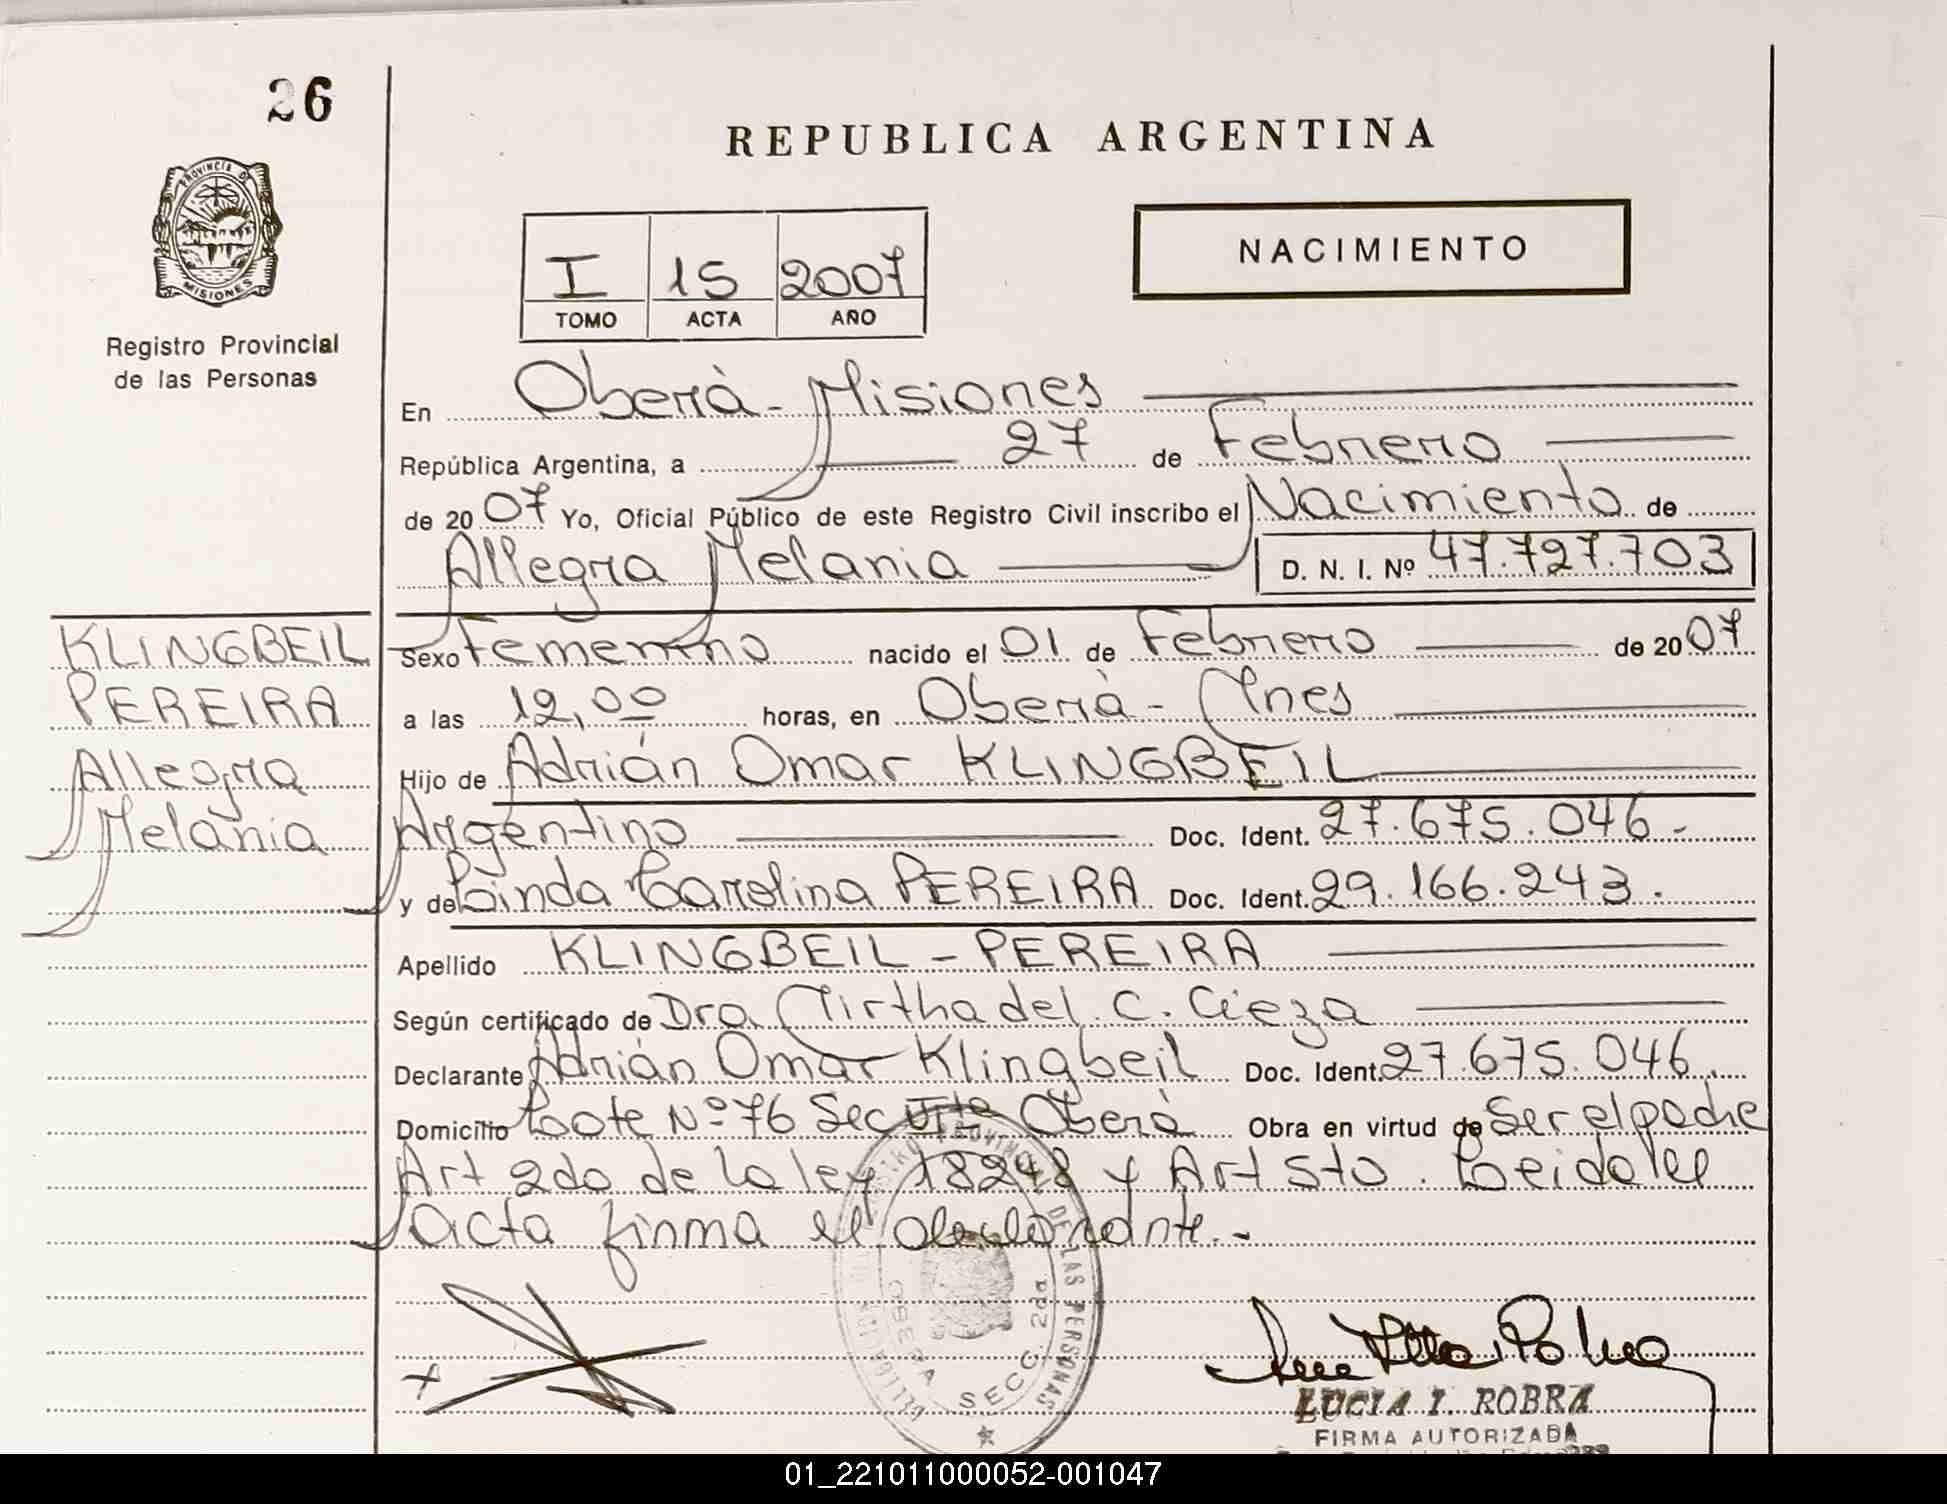 26
REPUBLICA ARGENTINA
PROVINCIA DE
MISIONES
Registro Provincial
de las Personas
NACIMIENTO
I 15 2007
TOMO ACTA AÑO
En Oberà - Misiones
República Argentina, a 27 de Febrero
de 2007 Yo, Oficial Público de este Registro Civil inscribo el Nacimiento de
Allegra Melania D. N. I. Nº 47.727.703
KLINGBEIL
PEREIRA
Allegra
Melania
Sexo Femenino nacido el 01 de Febrero de 2007
a las 12,00 horas, en Oberà - Mnes
Hijo de Adrián Omar KLINGBEIL
Argentino Doc. Ident. 27.675.046.-
y de Linda Carolina PEREIRA Doc. Ident. 29.166.243.
Apellido KLINGBEIL - PEREIRA
Según certificado de Dra Mirtha del. C. Cieza
Declarante Adrián Omar Klingbeil Doc. Ident. 27.675.046.
Domicilio Lote Nº 76 Sec Oberà Obra en virtud de Ser el padre
Art 2do de la ley 18248 y Art 5to. Leida el
acta firma el declarante.-
REGISTRO PROVINCIAL DE LAS PERSONAS
OBERA SECC. 2da
LUCIA I. ROBRA
FIRMA AUTORIZADA
01_221011000052-001047